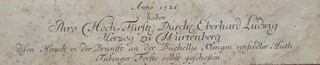 Anno 1721
haben
Ihro Hoch Fürstl. Durchl. Eberhard Ludwig
Herzog zu Würtenberg
disen Hirsch in der Brunfft an der Buchellis Klingen einsidler Huth
Tübinger Forsts selbst geschossen